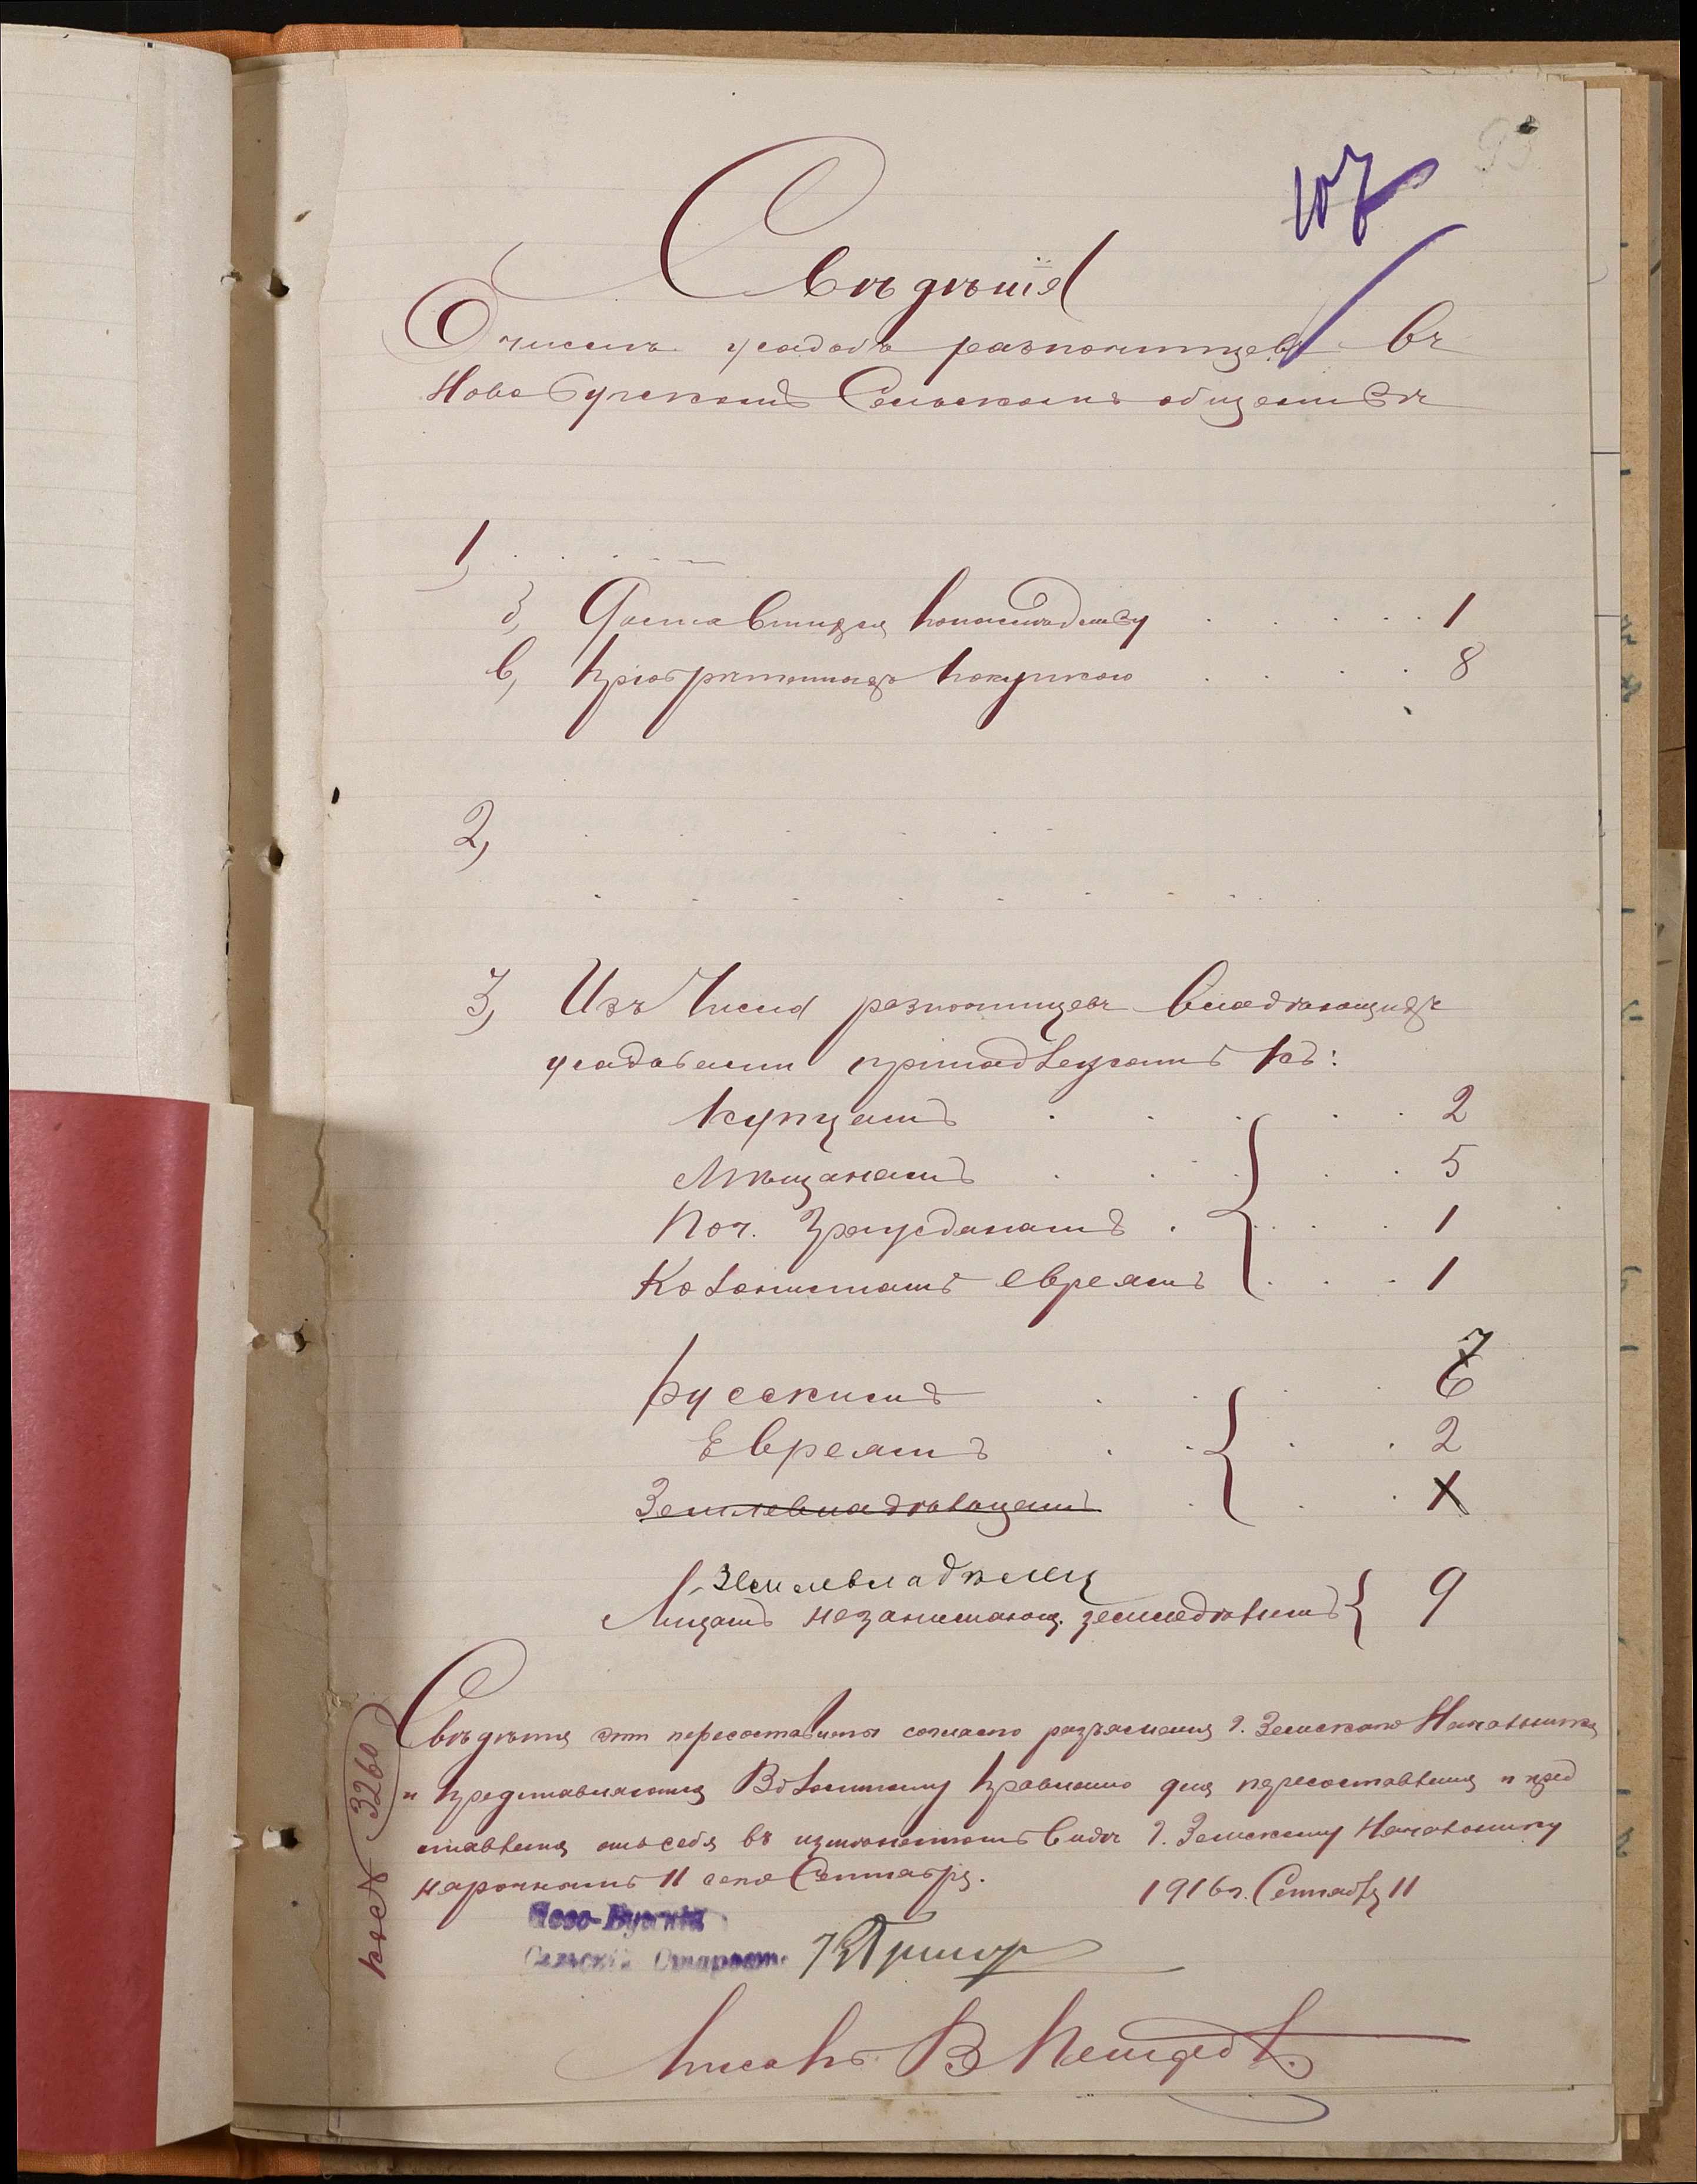 93
107
Свѣдѣнія
О числѣ усадьбъ разночинцевъ въ
Ново Бугскомъ Сельскомъ обществѣ
1,
б, Доставшихся по наслѣдству 1
в, Пріобрѣтенныхъ покупкою 8
2,
3, Изъ числа разночинцевъ владѣющихъ
усадьбами принадлежитъ къ:
Купцамъ 2
Мѣщанамъ 5
Поч. Гражданамъ 1
Колонистамъ евреямъ 1
Русскимъ 7
Евреямъ 2
Землевладѣльцамъ 1
Землевладѣлец
Лицамъ незанимающ. земледѣліемъ 9
Свѣдѣнія эти пересоставлены согласно разъясненія Г. Земскаго Начальника
и представляются Волостному Правленію для пересоставленія и пред
ставленія отъ себя въ измѣненномъ видѣ Г. Земскому Начальнику
нарочнымъ 11 сего Сентября. 1916 г. Сентября 11
№ 3260
Ново-Бугскій
Сельскій Староста
Писарь В